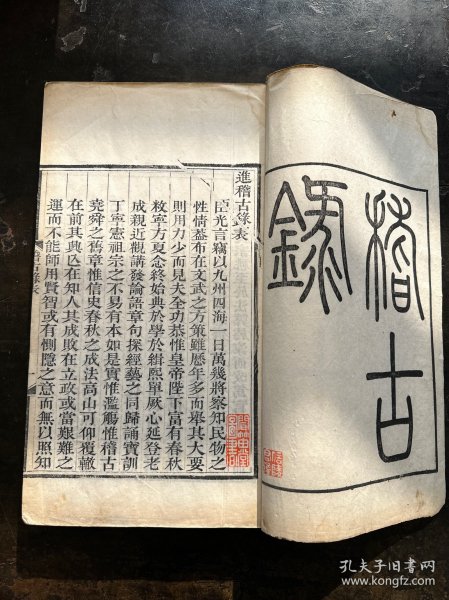 稽古
錄
進稽古錄表
臣光言竊以九州四海一日萬幾將察知民物之
性情蓋布在文武之方策雖歷年多而舉其大要
則用力少而見夫全功恭惟皇帝陛下富有春秋
敉寧方夏念終始典於學於緝熙單厥心延登老
成親近觀講發論語章句探經藝之同歸誦寶訓
丁寧憲祖宗之不易有本如是實惟濫觴惟稽古
堯舜之舊章惟信史春秋之成法高山可仰覆轍
在前其興亡在知人其成敗在立政或當艱難之
運而不能師用賢智或有惻隱之意而無以照知
稽古錄表
孔夫子旧书网
www.kongfz.com